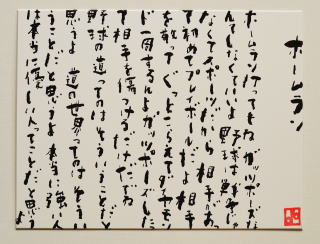 ホームラン
ホームラン打ってもねガッツポーズな
んてしなくていいよ 野球は戦争じゃ
なくてスポーツだから 相手があっ
て初めてプレイボールだよ 相手
を敬って ぐっとこらえてダイヤモン
ド一周するんよガッツポーズした
って相手を傷つけるだけだね
野球の道ってのはそういうことだと
思うよ 道の世界ってのはそうい
うことだと思うよ 本当に強い人
は本当に優しい人ってことだと思う
よ